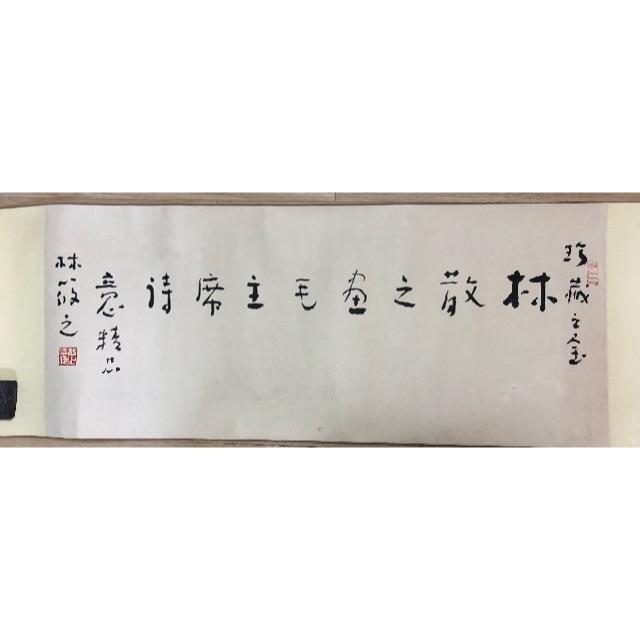 珍藏之宝
林散之画毛主席诗
意精品
林筱之